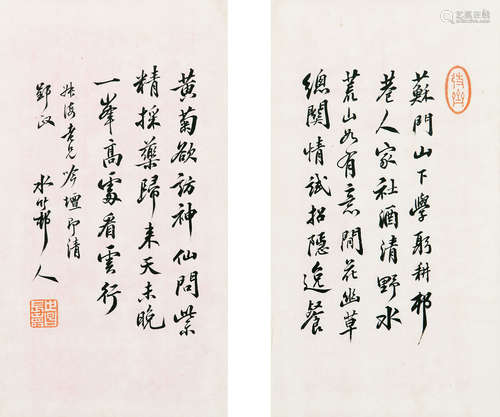 蘇門山下學躬耕邨
巷人家社酒清野水
荒山如有意閒花幽草
總關情試招隱逸餐
黃菊欲訪神仙問紫
精採藥歸來天未晚
一峯高處看雲行
海老兄吟壇即清
郢政
水竹邨人